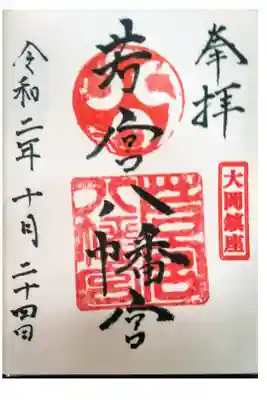 奉拝
大岡鎮座
若宮八幡宮
令和二年十月二十四日